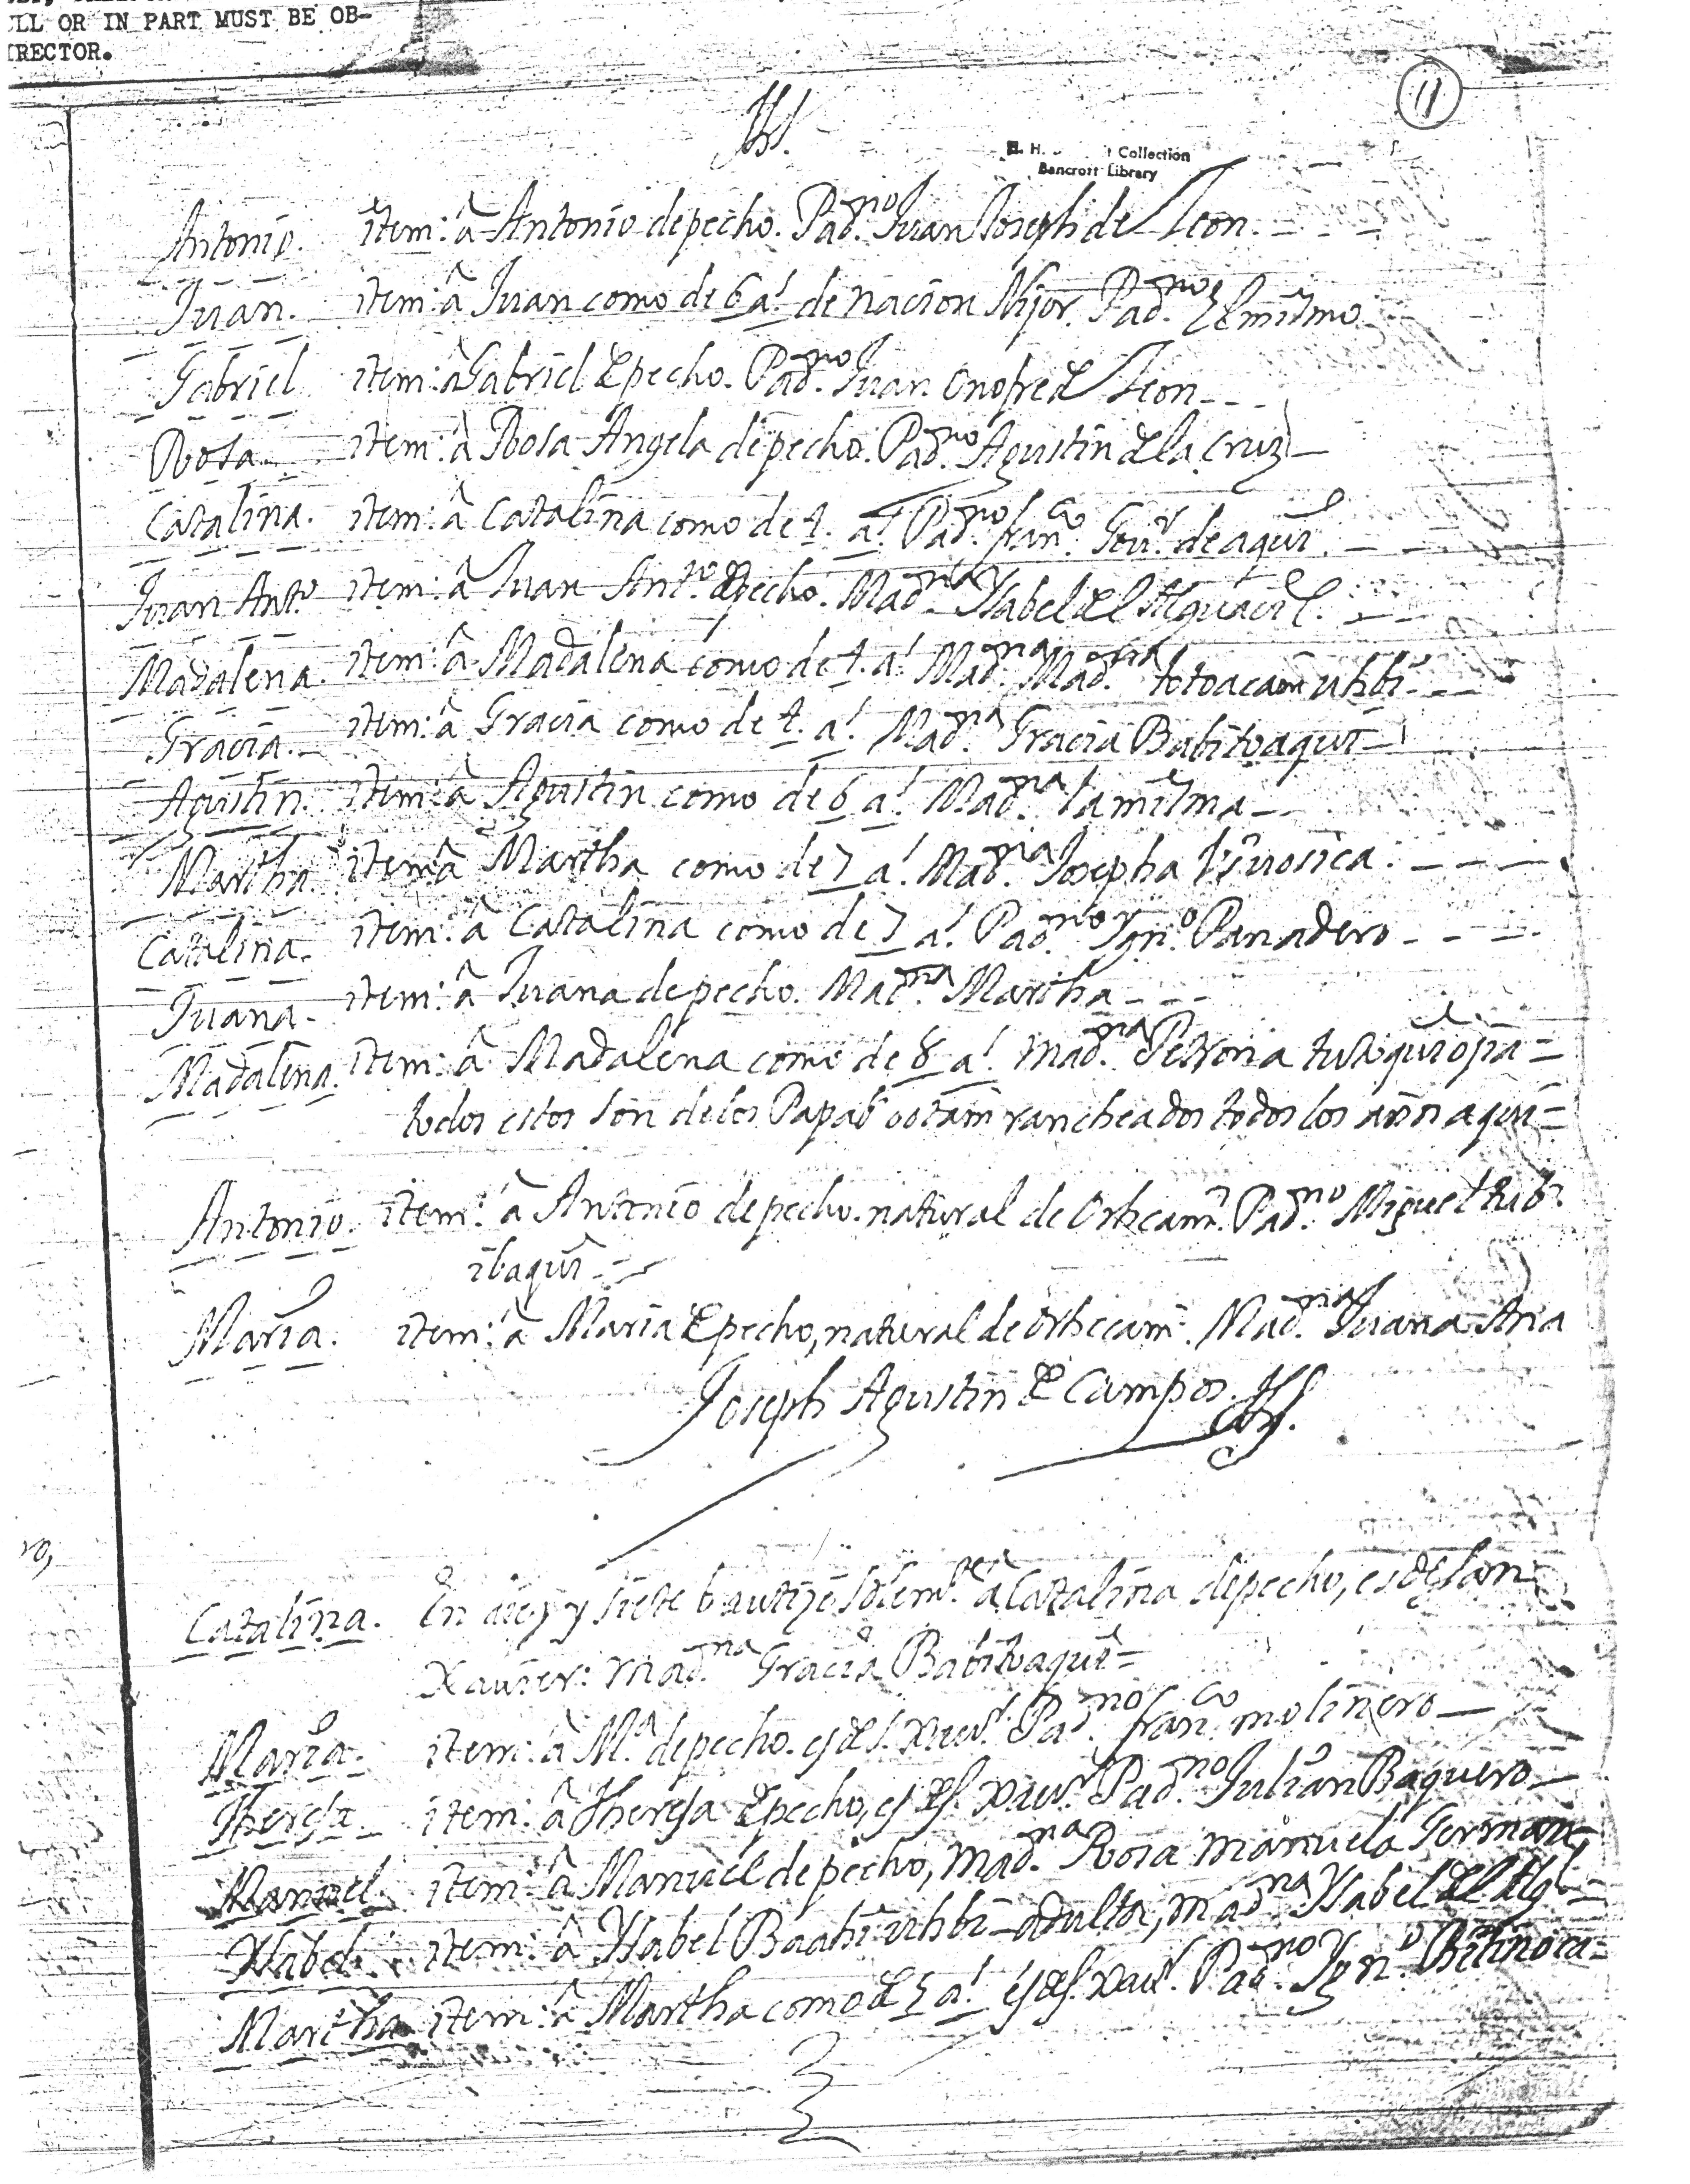 ULL OR IN PART MUST BE OB-
IRECTOR.
11
H. H. Collection
Bancroft Library
Antonio. item: â Antonio de pecho. Pad.no Juan Joseph de Leon.
Juan. item: â Juan como de 6 a.s de nacion Nijor. Pad.no El mismo
Gabriel item: â Gabriel de pecho. Pad.no Juan Onofre de Leon
Rosa item: â Rosa Angela de pecho. Pad.no Agustin de la Cruz
Catalina. item: â Catalina como de 4. a.s Pad.no fran.co Gov.r de aqui.
Juan Ant.o item: â Juan Ant.o de pecho. Mad.na Ysabel del Alguacil.
Madalena. item: â Madalena como de 4. a.s Mad.na
Gracia. item: â Gracia como de 4. a.s Mad.na Gracia Babitoaqui
Agustin. item: â Agustin como de 6 a.s Mad.na la misma
Martha item: â Martha como de 7 a.s Mad.na Josepha
Catalina. item: â Catalina como de 7 a.s Pad.no Ygn.o Panadero
Juana. item: â Juana de pecho. Mad.na Martha
Madalena. item: â Madalena como de 8 a.s Mad.na Petrona
todos estos son de los Papab' rancheados todos los años aqui =
Antonio. item: â Antonio de pecho. natural de Pad.no Miguel
ibaqui
Maria. item: â Maria de pecho, natural de Mad.na Juana Ana
Joseph Agustin de Campos.
ro,
Catalina. En diez y siete bautize solem.te â Catalina de pecho, es de San
Xavier: Mad.na Gracia Babitoaqui =
Maria. item: â M.a de pecho. es de S. Xav.r Pad.no fran.co molinero
Theresa. item: â Theresa de pecho, es de S. Xav.r Pad.no Julian Baquero
Manuel. item: â Manuel de pecho, Mad.na Rosa Manuela German
Ysabel. item: â Ysabel adulta, Mad.na Ysabel del Alg.l
Martha item: â Martha como de 5 a.s es de S. Xav.r Pad.no Ygn.o